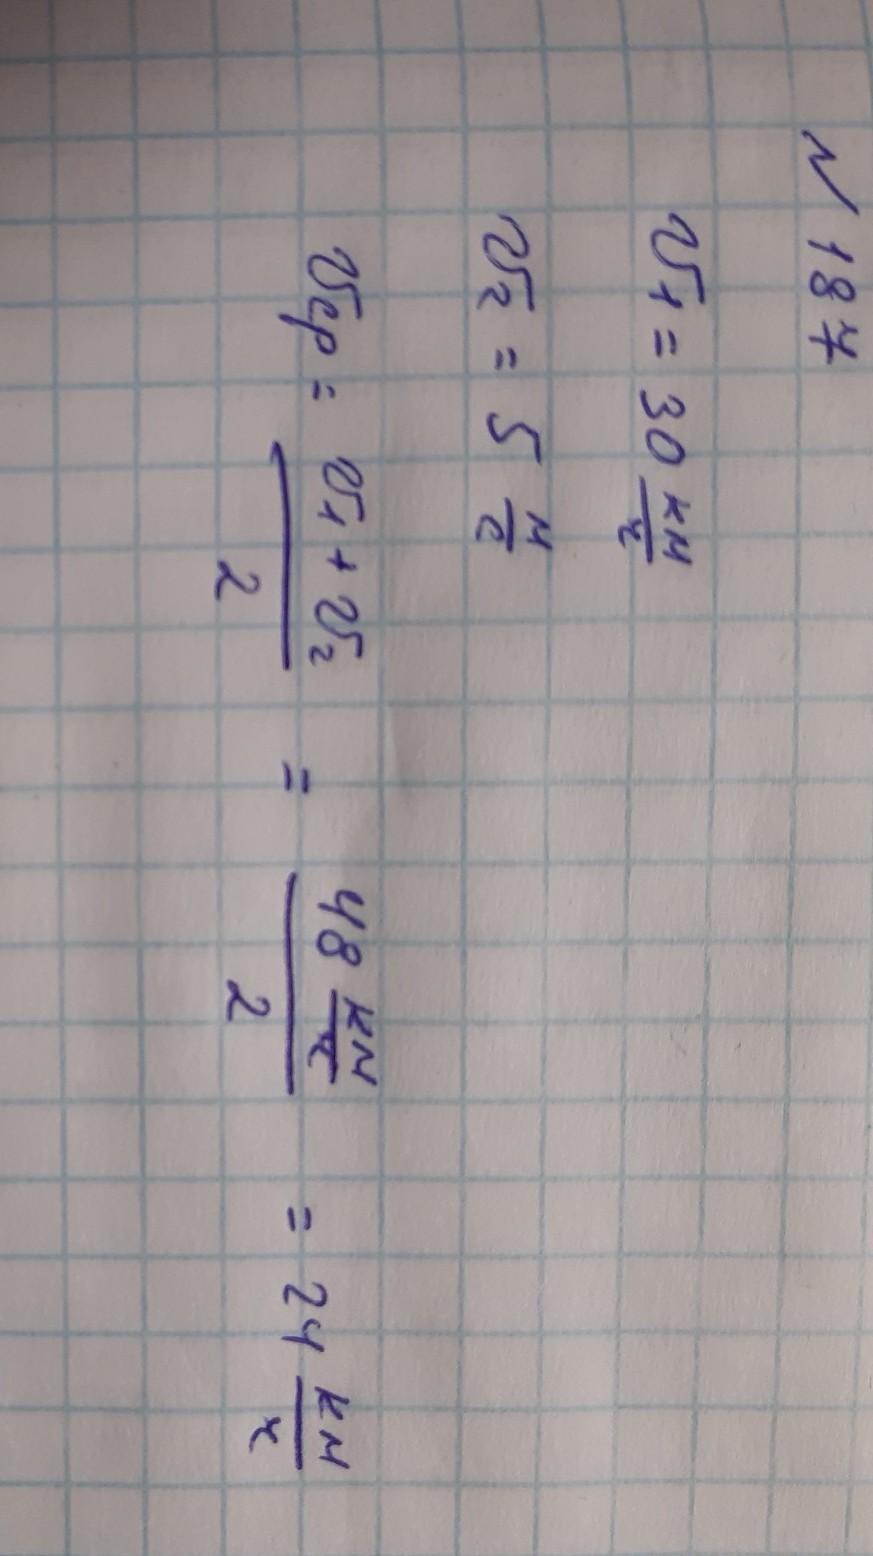 N 187
v₁ = 30 км/ч
v₂ = 5 м/с
vср = (v₁ + v₂)/2 = (48 км/ч)/2 = 24 км/ч